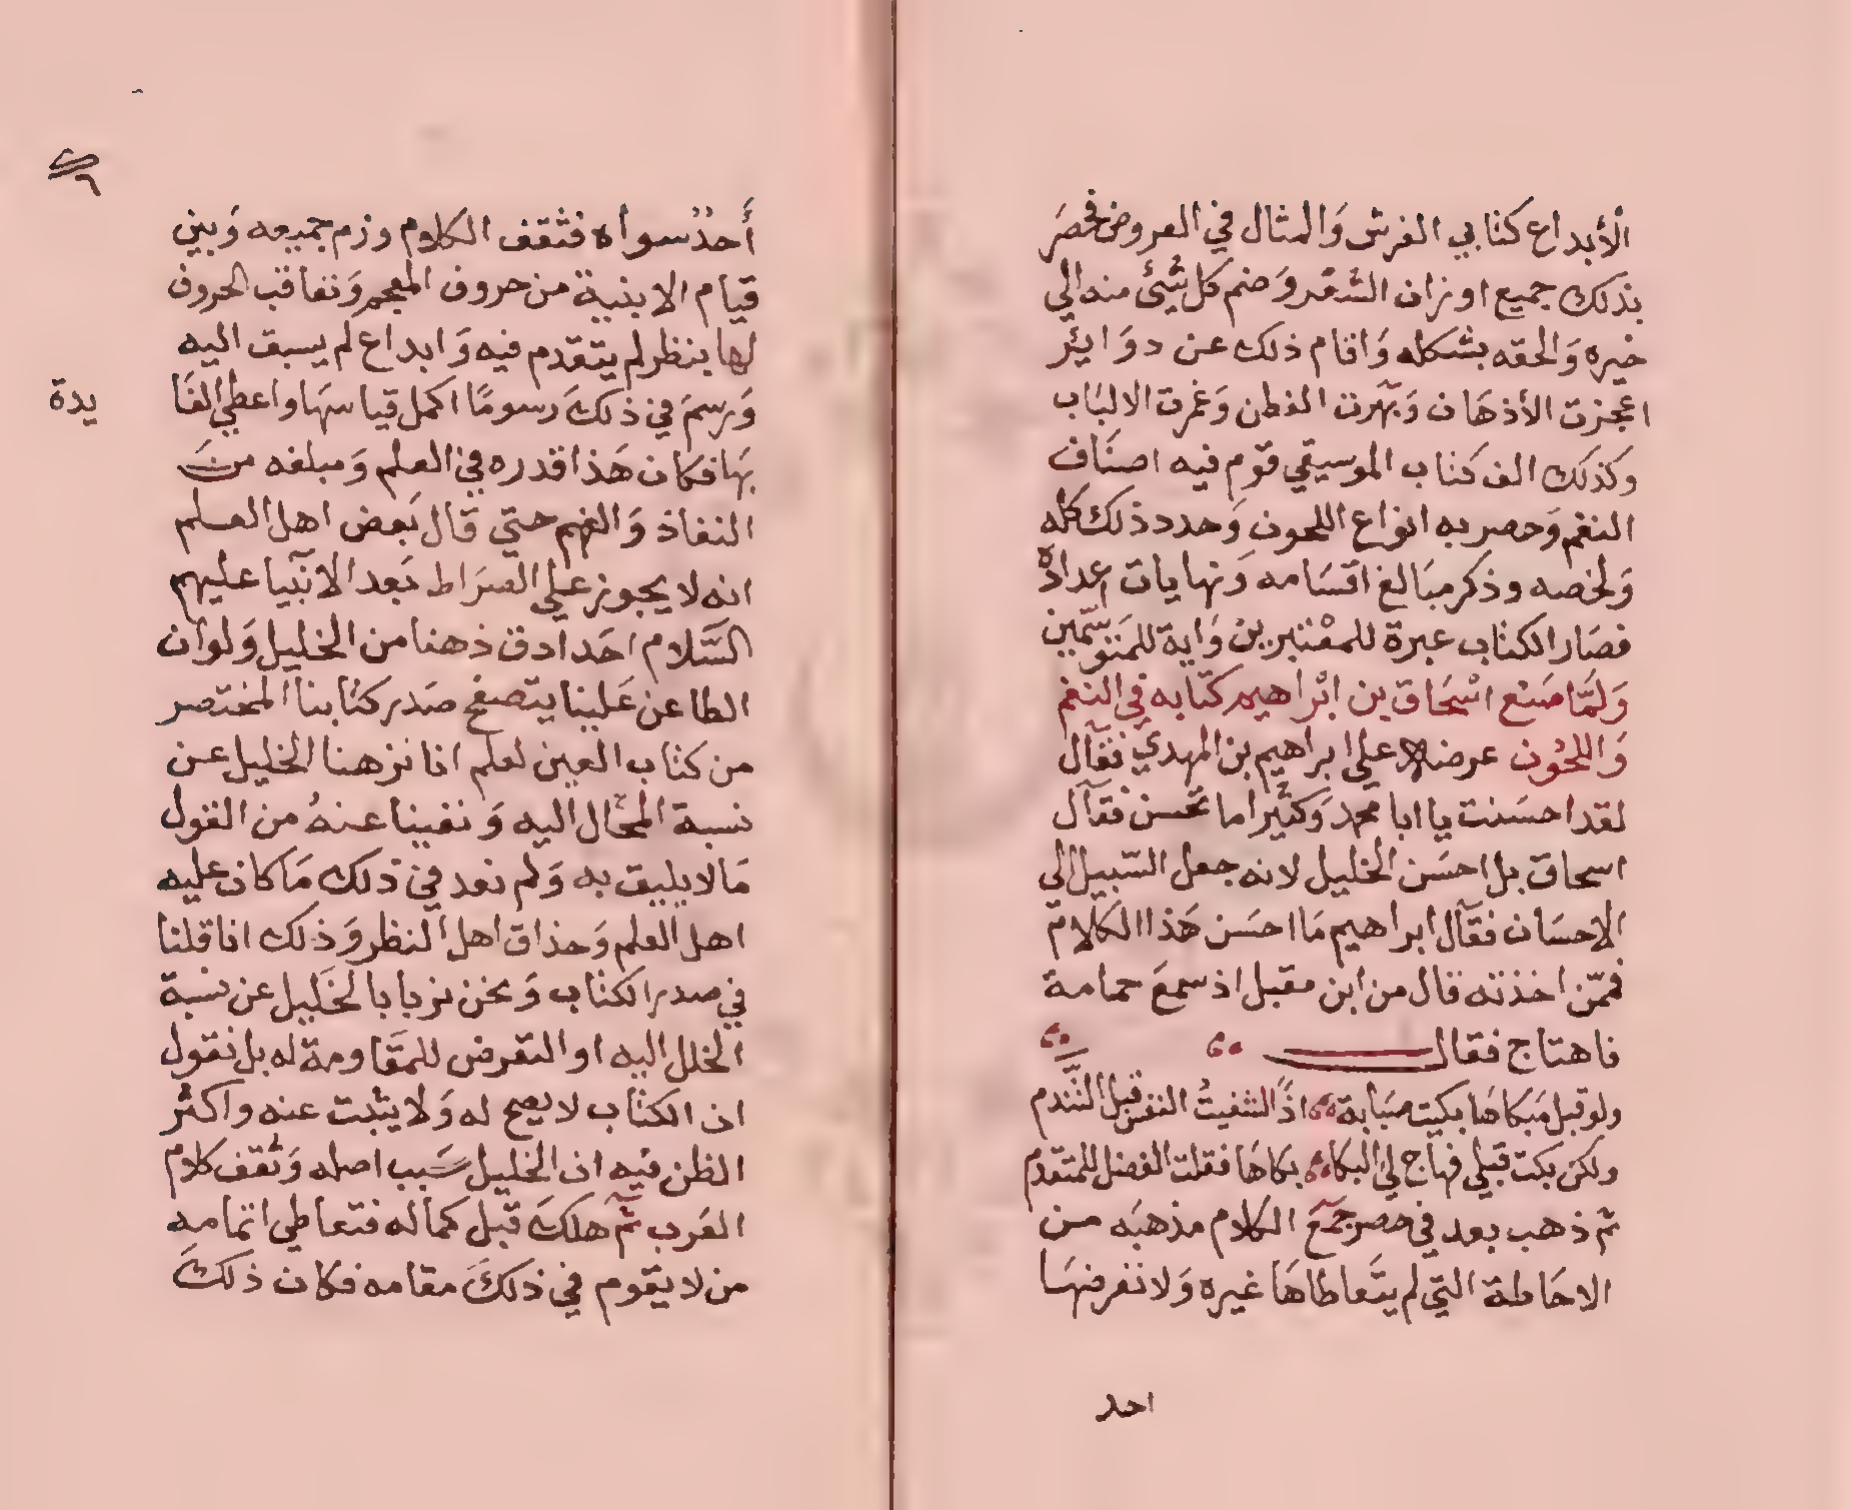 الْأبداع كتابي الفرش وَالمثال في العروض فحصَرَ
بذلك جميع اوزان الشعْر وَضم كل شيٍء منه الي
خيره وَالحقه بشكله وَاقام ذلك عن دوَايئر
اعجزت الأذهَان وَبهّرت الفطن وَغمرت الالبَاب
وكذلك الف كتاب الموسيقي قوّم فيه اصنَاف
النغم وَحصر به انواع اللحون وَحدد ذلك كله
وَلخصه وذكر مبَالغ اقسَامه وَنهايات اعدادهٌ
فصَار الكتاب عبرة للمعْتبرين وَاية للمَتوسّمين
وَلمَّا صَنع اسْحَاق بن ابْراهيم كتابه في النغم
وَاللحُون عرضه علي ابراهيم بن المهدي فقآل
لقد احسَنت يا ابا محمد وَكثيْرا ما تحسن فقآل
اسحاق بل احسَن الخليل لانه جعل السّبيل الي
الاحسَان فقآل ابراهيم مَا احسَن هَذا الكلام
فممّن اخذته قال من ابن مقبل اذ سمعَ حمامة
فاهتاج فقال
ولو قبل مَبكاهَا بكيت صبَابة اذًا لشفيتُ النفس قبل التندم
ولكن بكت قبلي فهاج لي البكا بكاهَا فقلت الفضل للمتقدم
ثم ذهب بعد في حصر جمَعَ الكلام مذهبَه من
الاحَاطة التي لم يتَعاطاهَا غيره وَلا تعرضهَا
احد
أَحدٌ سواه فثقف الكلام وزم جميعه وَبين
قيام الابنية من حروف المعجم وَتعاقب الحروف
لها بنظر لم يتقدم فيه وَابداع لم يسبق اليه
وَرسمَ في ذلكَ رسومًا اكمل قياسهَا واعطي الفَا
يدة
بهَا فكان هَذا قدره في العلم وَمبلغه من
النفاذ وَالفهم حتي قال بَعض اهل العلم
انه لا يجوز علي الصرَاط بَعد الانبْيآ عليهم
السَّلام احَد ادق ذهنا من الخليل وَلو ان
الطاعن عَلينا يتصفح صَدر كتابنا المختصر
من كتاب العين لعلم انا نزهنا الخليل عن
نسبة المحَال اليه وَنفينا عنهُ من القول
مَا لا يليق به وَلم نعد في ذلك مَا كان عليه
اهل العلم وَحذاق اهل النظر وَذلك انا قلنا
في صدر الكتاب وَنحن نربا بالخَليل عن نسبة
الخلل اليه او التعرض للمقَاومة له بل نقول
ان الكتاب لا يصح له وَلا يثبت عنه واكثر
الظن فيه ان الخليل سَبب اصله وَثقف كلام
العَرب ثمّ هلكَ قبل كماله فتعاطي اتمامه
من لا يقوم في ذلكَ مقامه فكان ذلكَ